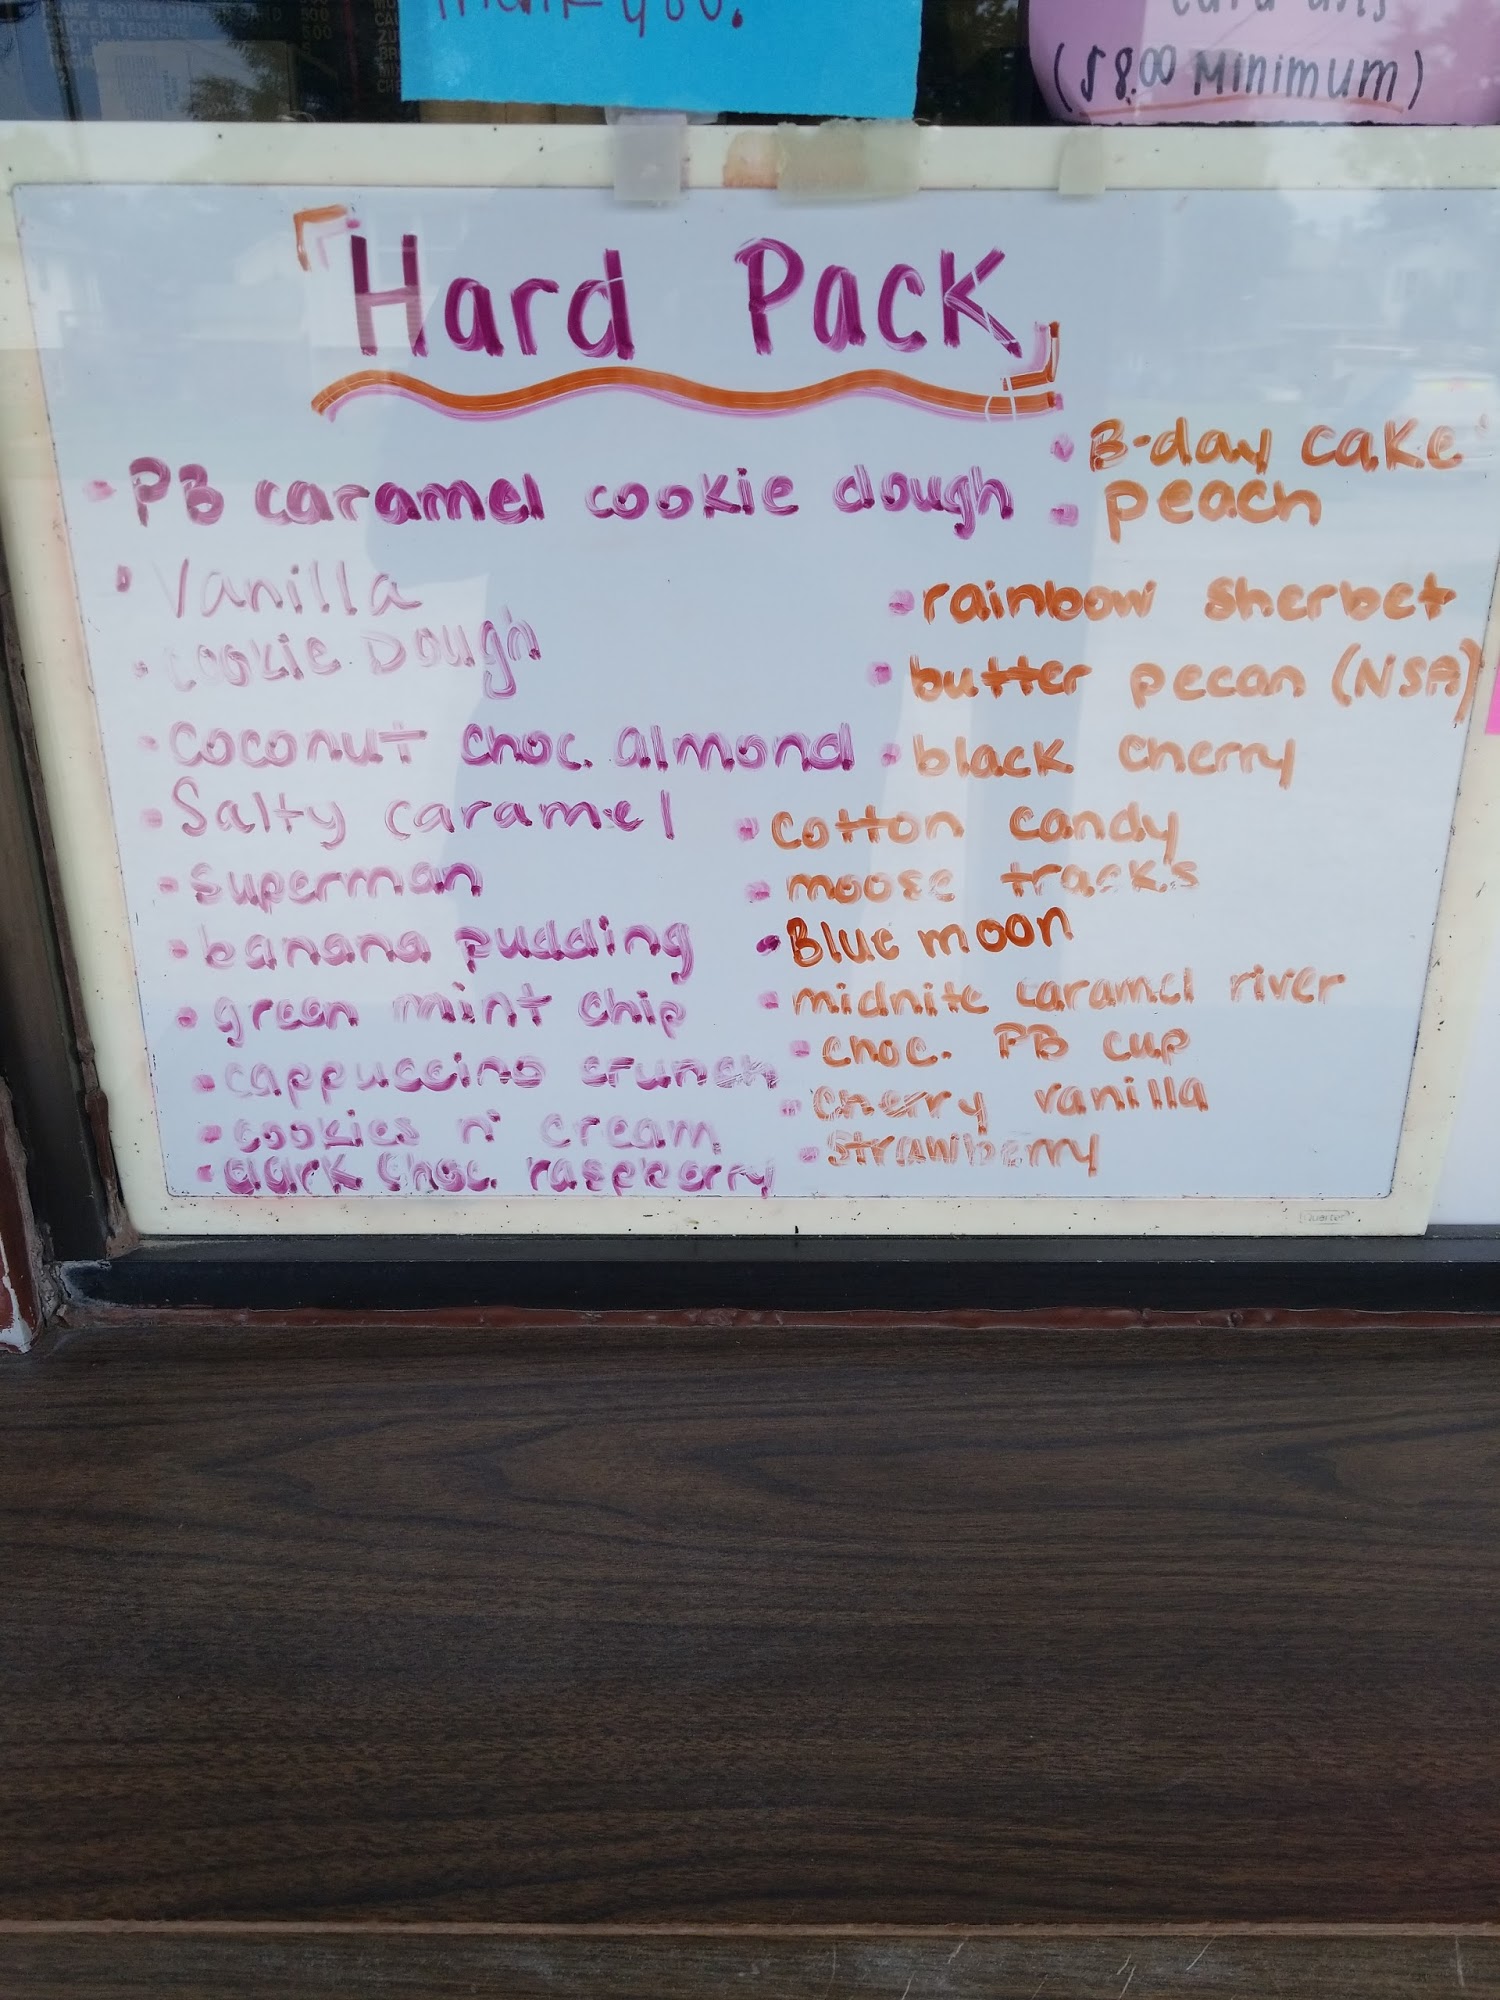 Thank you.
($8.00 Minimum)
CHICKEN TENDERS
Hard Pack
• PB caramel cookie dough
• Vanilla
• cookie Dough
• coconut choc. almond
• Salty caramel
• superman
• banana pudding
• green mint chip
• cappuccino crunch
• cookies n' cream
• dark choc. raspberry
• B-day cake
• peach
• rainbow sherbet
• butter pecan (NSA)
• black cherry
• cotton candy
• moose tracks
• Blue moon
• midnite caramel river
• choc. PB cup
• cherry vanilla
• strawberry
Quartet